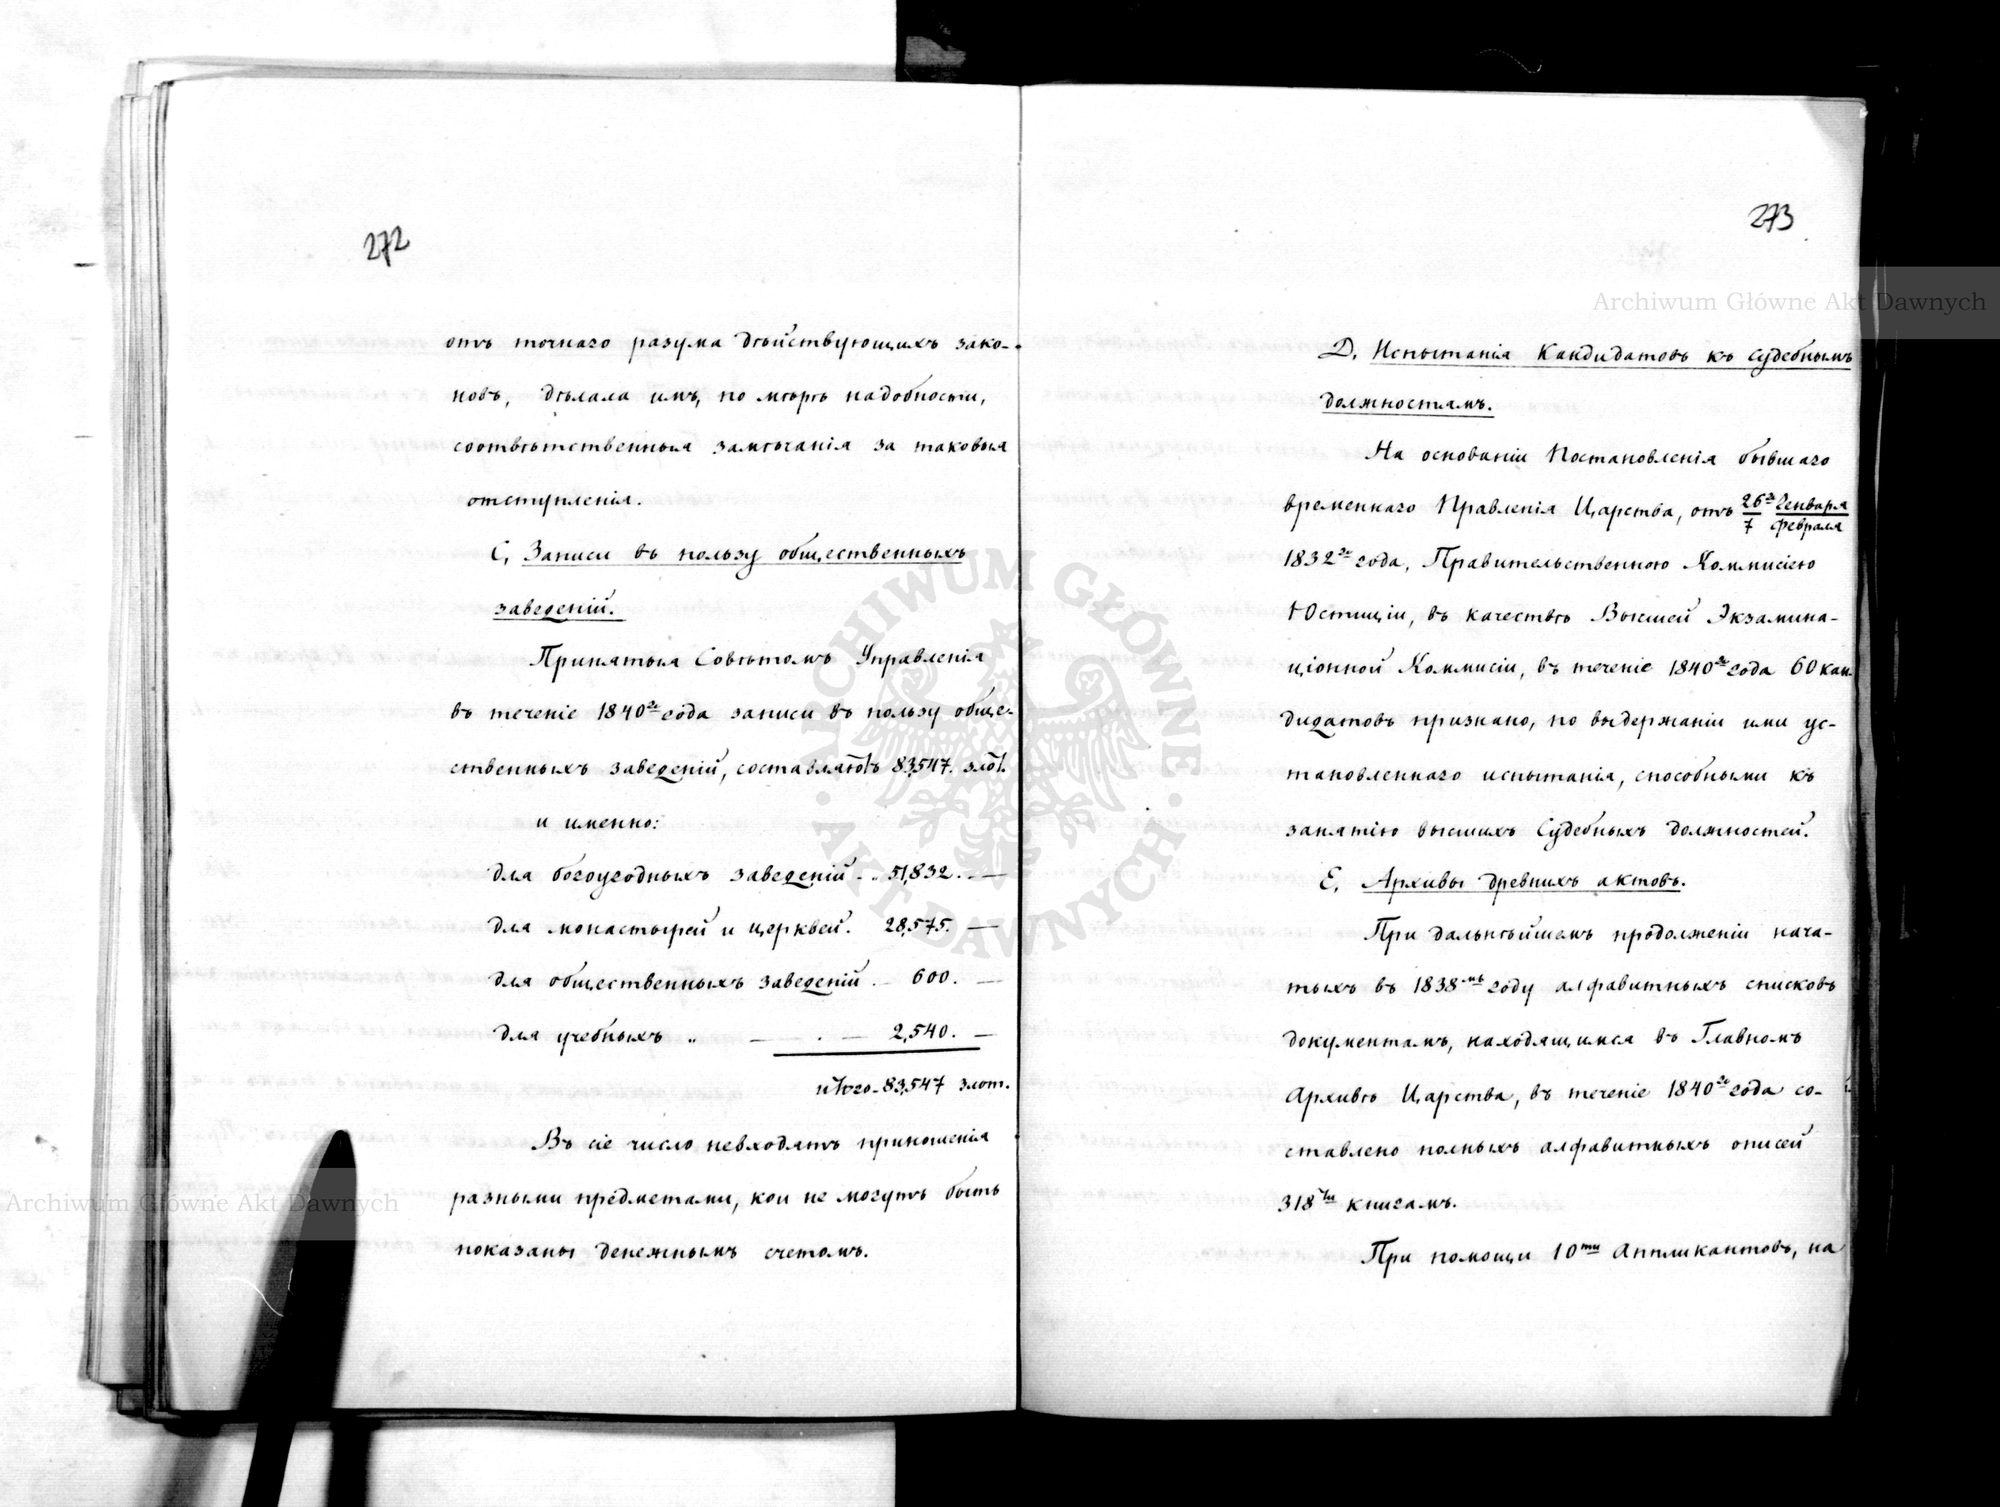 272
отъ точнаго разума дѣйствующихъ зако-
новъ, дѣлала имъ, по мѣрѣ надобности,
соотвѣтственныя замѣчанія за таковыя
отступленія.
С, Записи въ пользу общественныхъ
заведеній.
Принятыя Совѣтомъ Управленія
въ теченіе 1840го года записи въ пользу обще-
ственныхъ заведеній, составляютъ 83,547. злот.
и именно:
для богоугодныхъ заведеній - . 51,832. —
для монастырей и церквей. 28,575. —
для общественныхъ заведеній . - 600. —
для учебныхъ „ — . — 2,540. —
итого - 83,547 злот.
Въ сіе число невходятъ приношенія
разными предметами, кои не могутъ быть
показаны денежнымъ счетомъ.
273
D, Испытанія Кандидатовъ къ судебнымъ
должностямъ.
На основаніи Постановленія бывшаго
временнаго Правленія Царства, отъ 26го Генваря / 7 Февраля
1832го года, Правительственною Коммисіею
Юстиціи, въ качествѣ Высшей Экзамина-
ціонной Коммисіи, въ теченіе 1840го года 60 кан-
дидатовъ признано, по выдержаніи ими ус-
тановленнаго испытанія, способными къ
занятію высшихъ Судебныхъ должностей.
Е, Архивы древнихъ актовъ.
При дальнѣйшемъ продолженіи нача-
тыхъ въ 1838мъ году алфавитныхъ списковъ
документамъ, находящимся въ Главномъ
Архивѣ Царства, въ теченіе 1840го года со-
ставлено полныхъ алфавитныхъ описей
318ти книгамъ.
При помощи 10ти Аппликантовъ, на
Archiwum Główne Akt Dawnych
Archiwum Główne Akt Dawnych
ARCHIWUM GŁÓWNE
AKT DAWNYCH